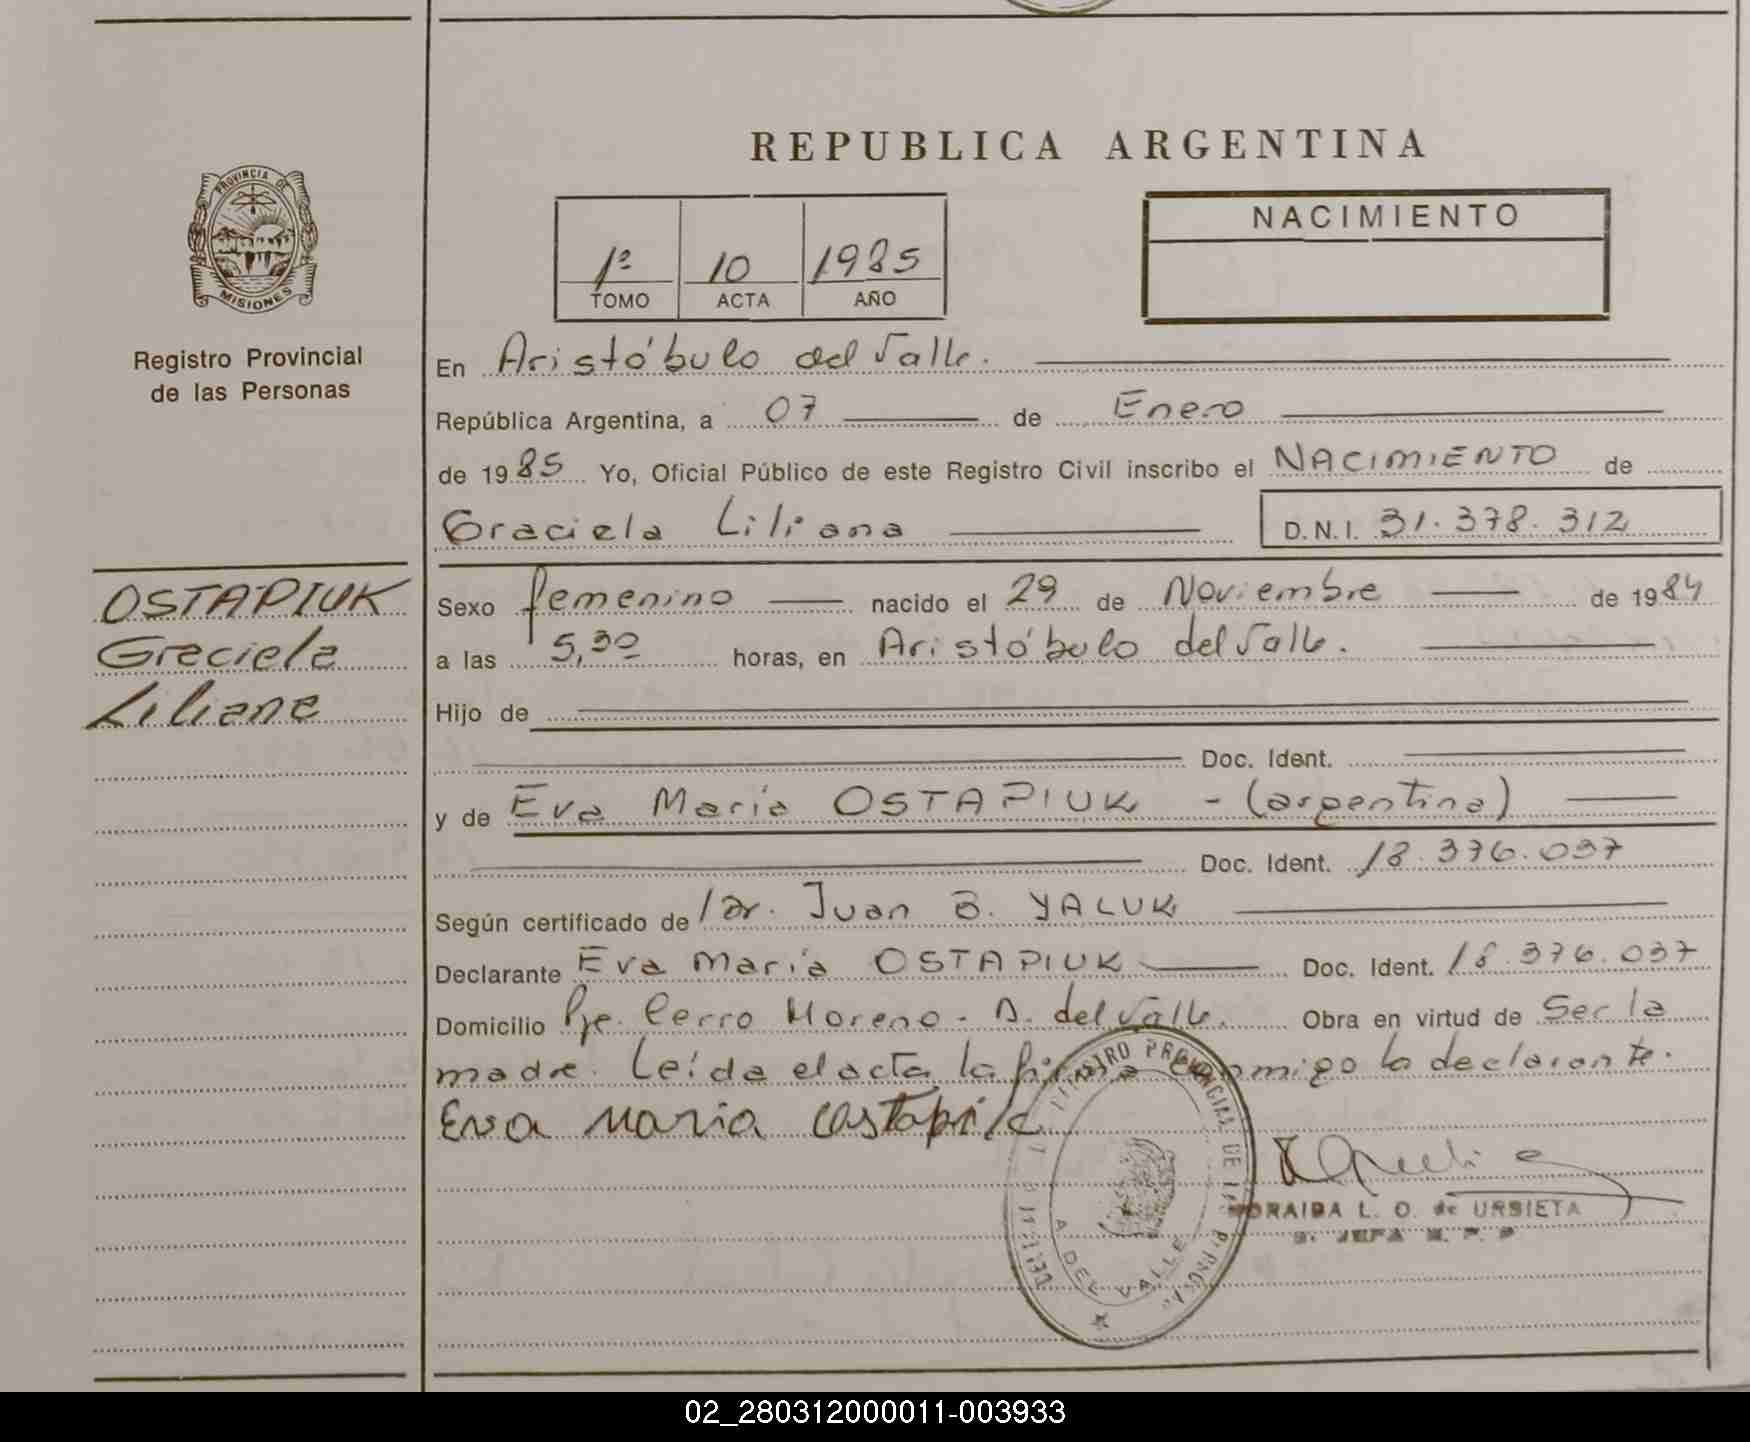 REPUBLICA ARGENTINA
PROVINCIA DE
MISIONES
Registro Provincial
de las Personas
1º 10 1985
TOMO ACTA AÑO
NACIMIENTO
En Aristóbulo del Valle.
República Argentina, a 07 de Enero
de 1985 Yo, Oficial Público de este Registro Civil inscribo el NACIMIENTO de
Graciela Liliana D.N.I. 31.378.312
OSTAPIUK
Graciela
Liliana
Sexo femenino nacido el 29 de Noviembre de 1984
a las 5,30 horas, en Aristóbulo del Valle.
Hijo de
Doc. Ident.
y de Eva María OSTAPIUK - (argentina)
Doc. Ident. 18.376.037
Según certificado de Dr. Juan B. YALUK
Declarante Eva María OSTAPIUK Doc. Ident. 18.376.037
Domicilio Pje. Cerro Moreno - A. del Valle. Obra en virtud de Ser la
madre. Leída el acta, la firma conmigo la declarante.
Eva Maria
REGISTRO PROVINCIAL DE LAS PERSONAS
A. DEL VALLE
L. O. de URBIETA
02_280312000011-003933